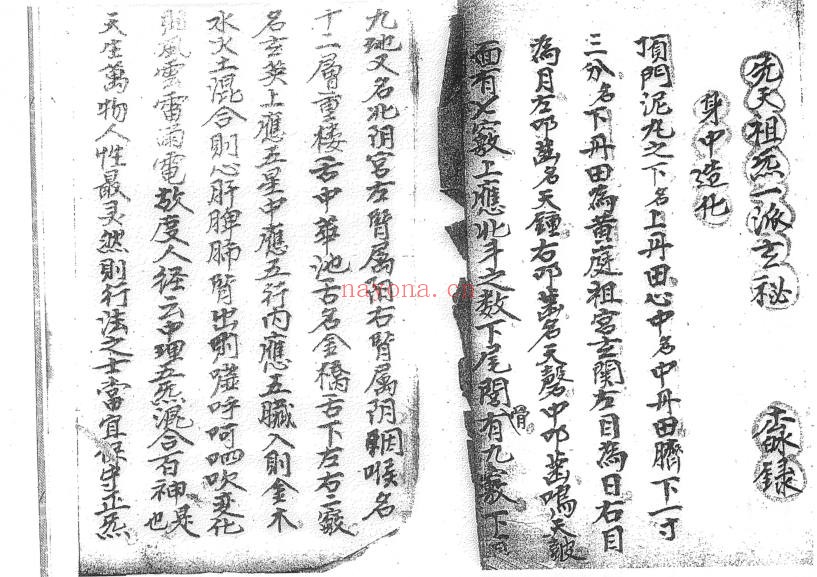 先天祖炁一派玄秘 錄
身中造化
頂門泥丸之下名上丹田心中名中丹田臍下一寸
三分名下丹田為黃庭祖宮玄関左目為日右目
為月左叩齒名天鍾右叩齒名天磬中叩齒鳴天皷
面有七竅上應北斗之数下尾閭骨有九竅下
九地又名北阴宮左腎属 右腎属阴咽喉名
十二層重楼舌中華池舌名金橋舌下左右二竅
名玄英上應五星中應五行內應五臟入則金木
水火土混合則心肝脾肺腎出則 呼呵呬吹变化
風雲雷 電故度人经云中理五炁混合百神是也
天生萬物人性最灵然則行法之士當宜保中正炁
nayona.cn